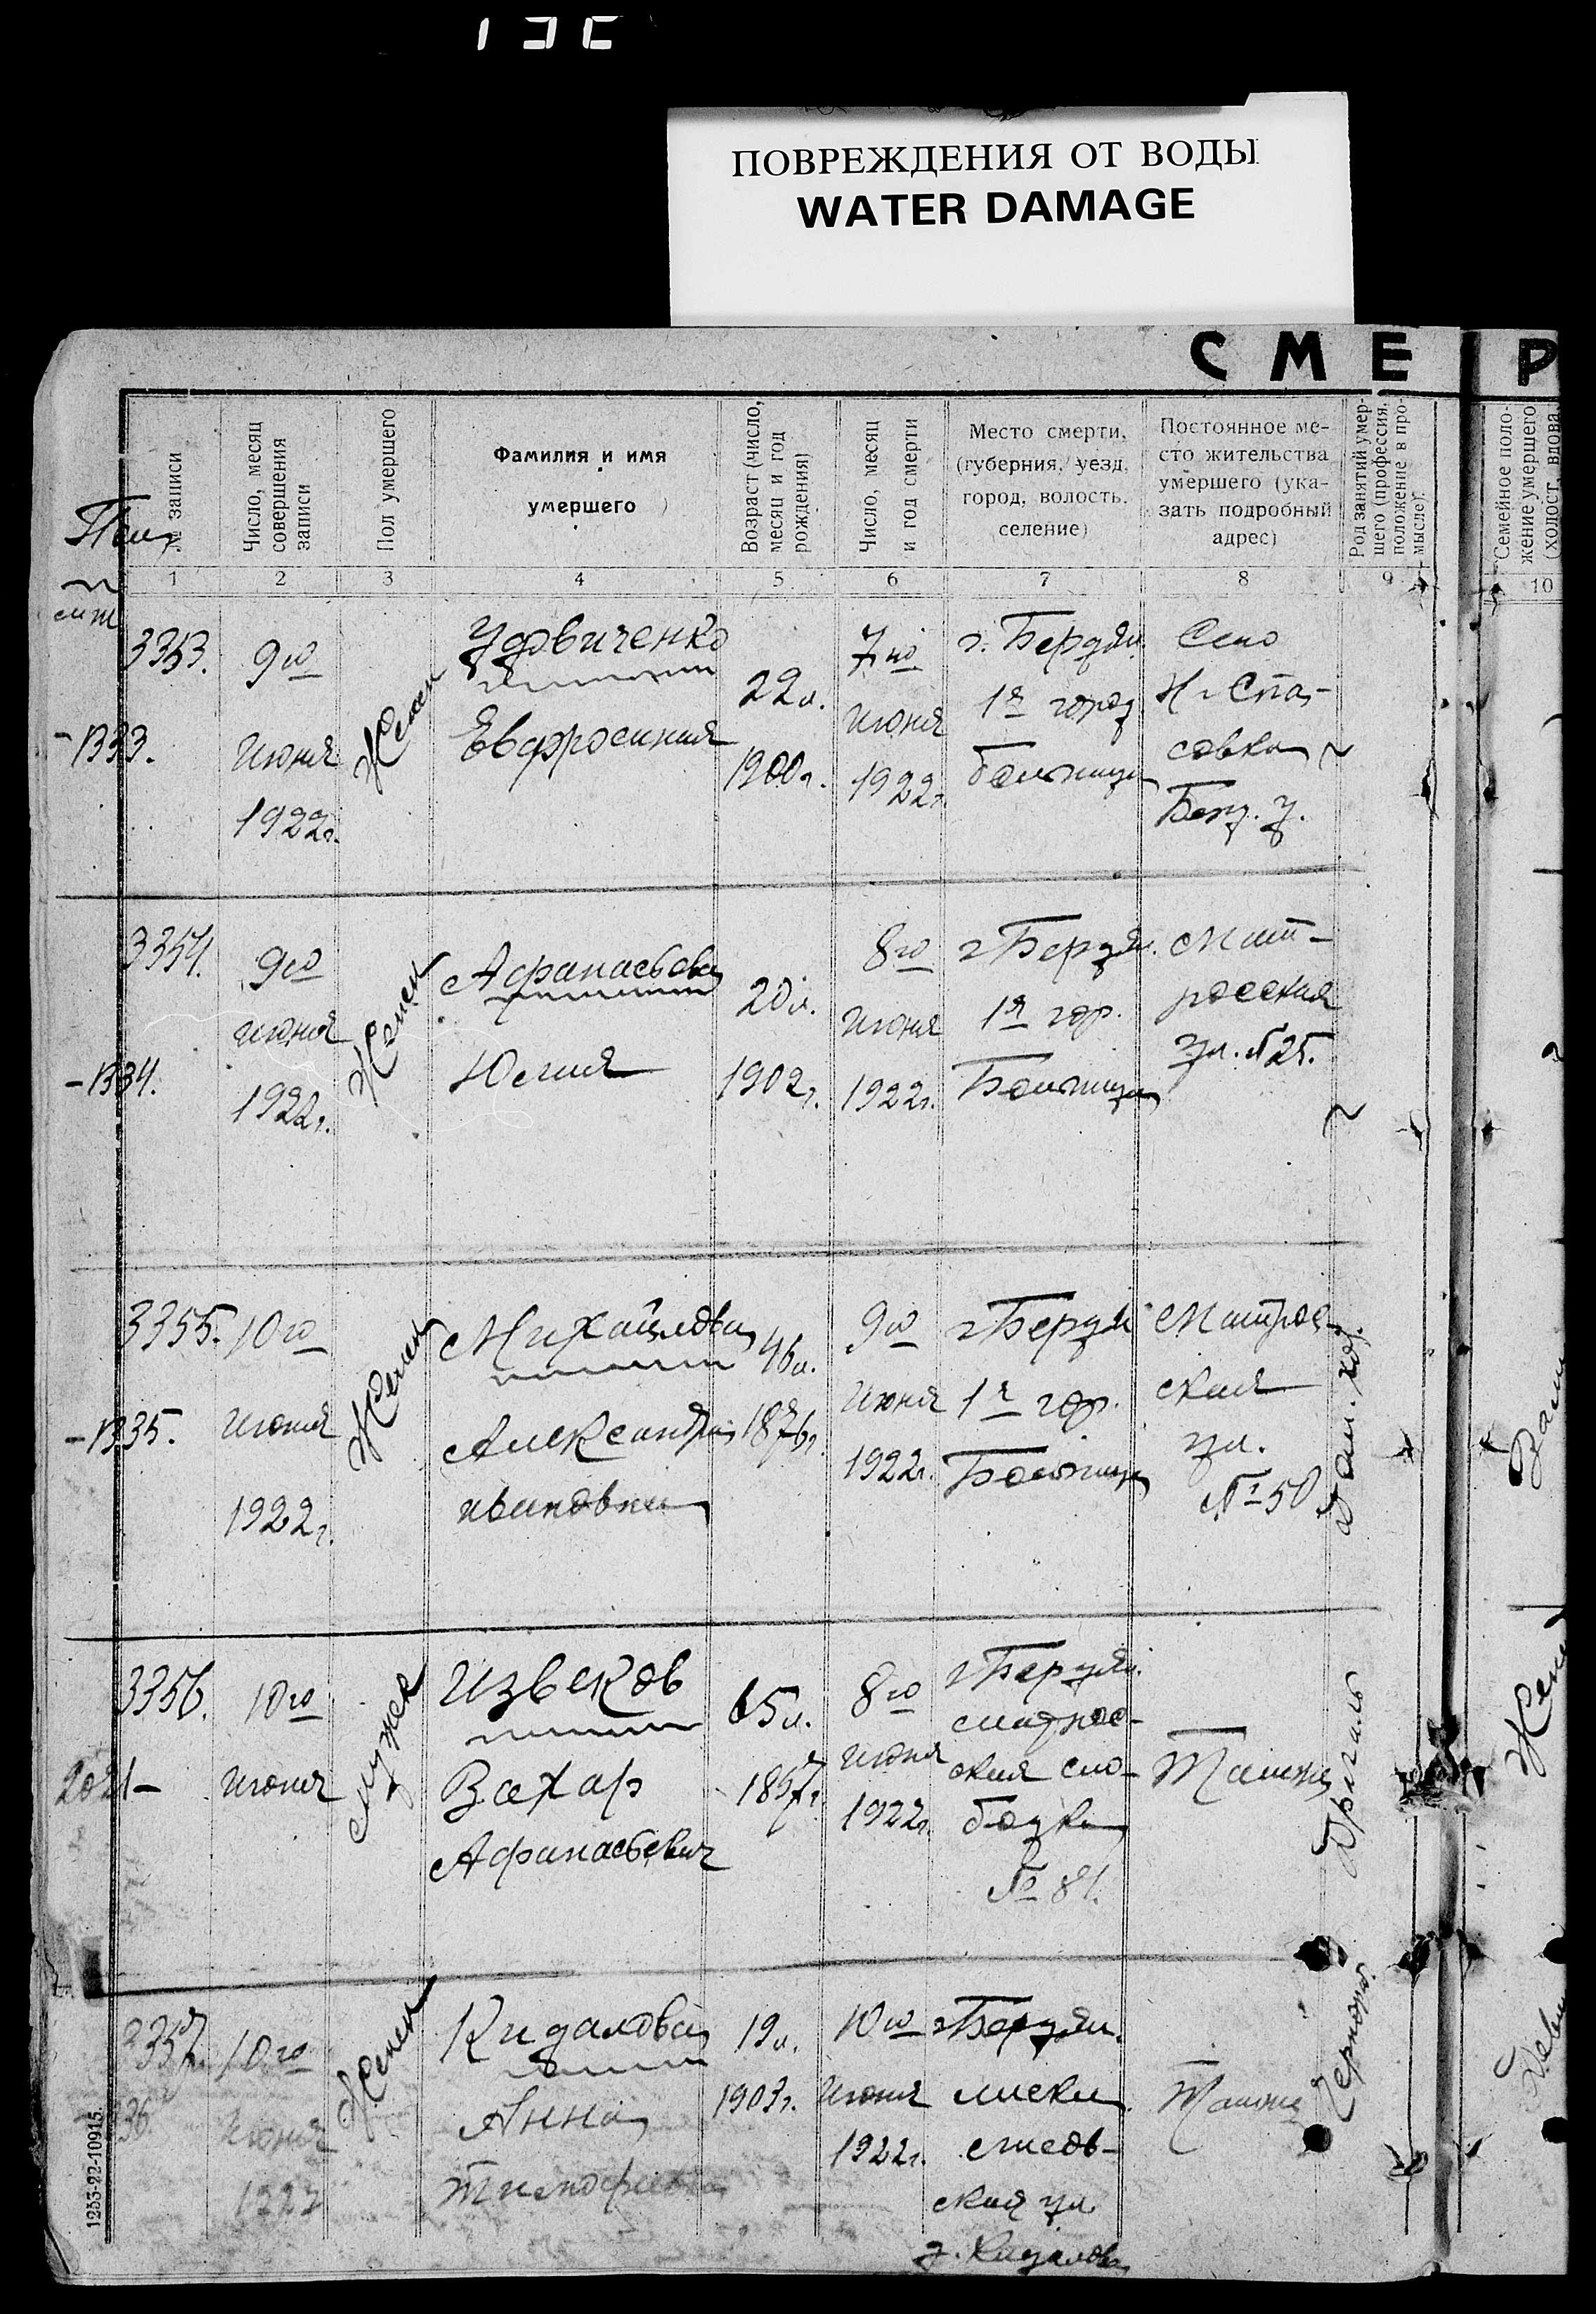 ПОВРЕЖДЕНИЯ ОТ ВОДЫ
WATER DAMAGE
СМЕ Р
№ записи
Число, месяц
совершения
записи
Пол умершего
Фамилия и имя
умершего
Возраст (число,
месяц и год
рождения)
Число, месяц
и год смерти
Место смерти,
(губерния, уезд,
город, волость,
селение)
Постоянное ме-
сто жительства
умершего (ука-
зать подробный
адрес)
Род занятий умер-
шего (профессия,
положение в про-
мысле).
Семейное поло-
жение умершего
(холост, вдова,
1 2 3 4 5 6 7 8 9 10
3353.
1333.
9го
июня
1922г.
Женск
Удовиченко
Евфросиния
22л.
1900г.
7го
июня
1922г.
г. Бердян.
1я город
больница
Село
Н-Спа-
совка
Берд. у.
3354.
1334.
9го
июня
1922г.
Женск
Афанасьева
Юлия
20л.
1902г.
8го
июня
1922г.
г Бердян.
1я гор.
Больница
Мат-
росская
ул. №25.
3355.
1335.
10го
июня
1922г.
Женск
Михайлова
Александра
Ивановна
46л.
1876г.
9го
июня
1922г.
г Бердян
1я гор.
Больница
Матрос-
ская
ул.
№50
Дом. хоз.
3356.
2021
10го
июня
мужск
Извеков
Захар
Афанасьевич
65л.
1857г.
8го
июня
1922г.
г Бердян.
матрос-
ская сло-
бодка
№ 81.
Тамже
3357.
336.
10го
июня
1922
Женск
Кидалова
Анна
Тимофеевна
19л.
1903г.
10го
июня
1922г.
г Бердян.
ская ул.
д. Кидалова
Тамже
Чернораб.
1253-22-10915.